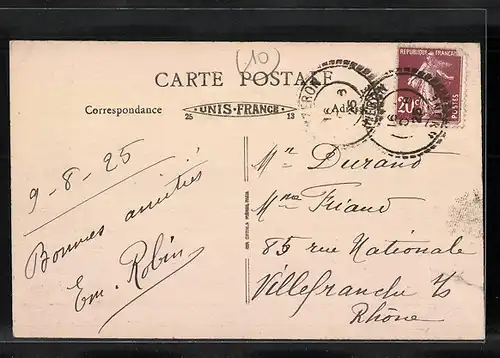 (10)
CARTE POSTALE
Correspondance
UNIS-FRANCE
25
13
REPUBLIQUE FRANÇAISE
20c
POSTES
9-8-25
Bonnes amitiés
Em. Robin
Mr Durand
Mme Friand
85 rue Nationale
Villefranche s/s
Rhône